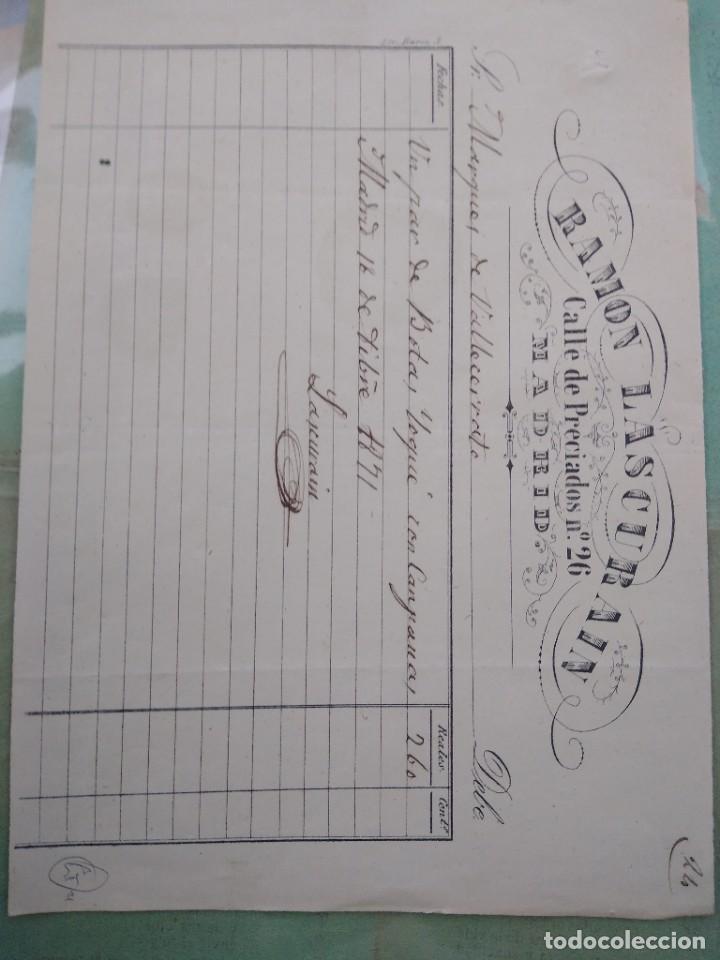 RAMON LASCURAIN
Calle de Preciados nº. 26
MADRID
Sr. Marques de Vallecerrato Debe
Fechas Reales Centº
Un par de Botas con Campanas, 260
Madrid 16 de 1871
Lascurain
todocoleccion.net